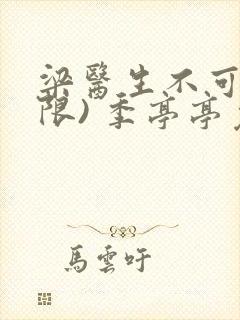 梁醫生不可
限)季亭亭
馬雲吁